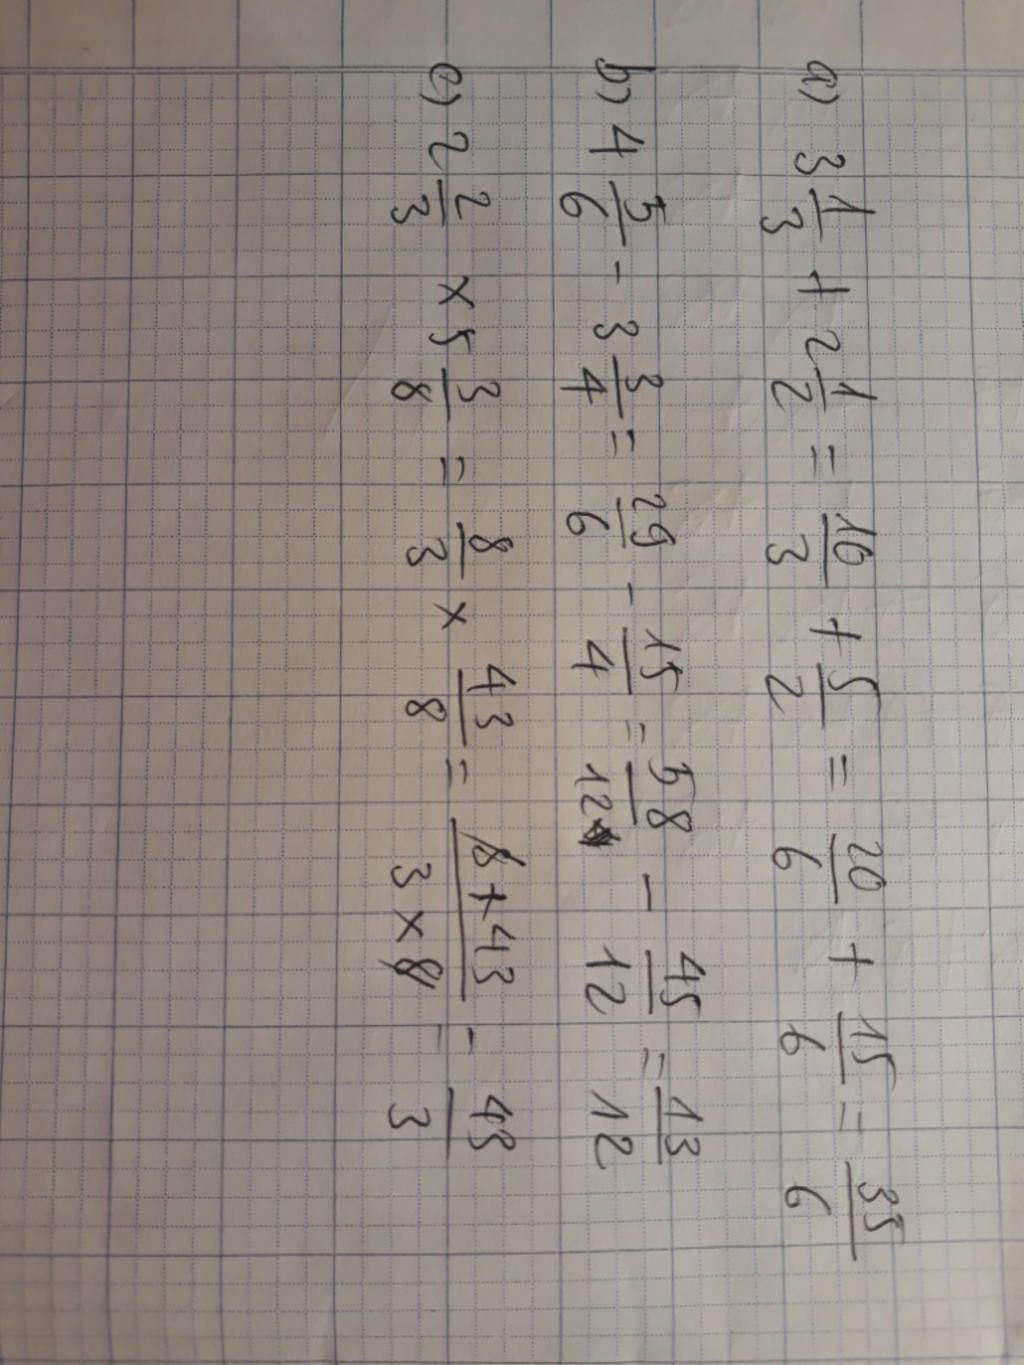 a) 3 1/3 + 2 1/2 = 10/3 + 5/2 = 20/6 + 15/6 = 35/6
b) 4 5/6 - 3 3/4 = 29/6 - 15/4 = 58/12 - 45/12 = 13/12
c) 2 2/3 × 5 3/8 = 8/3 × 43/8 = 8×43/3×8 = 43/3